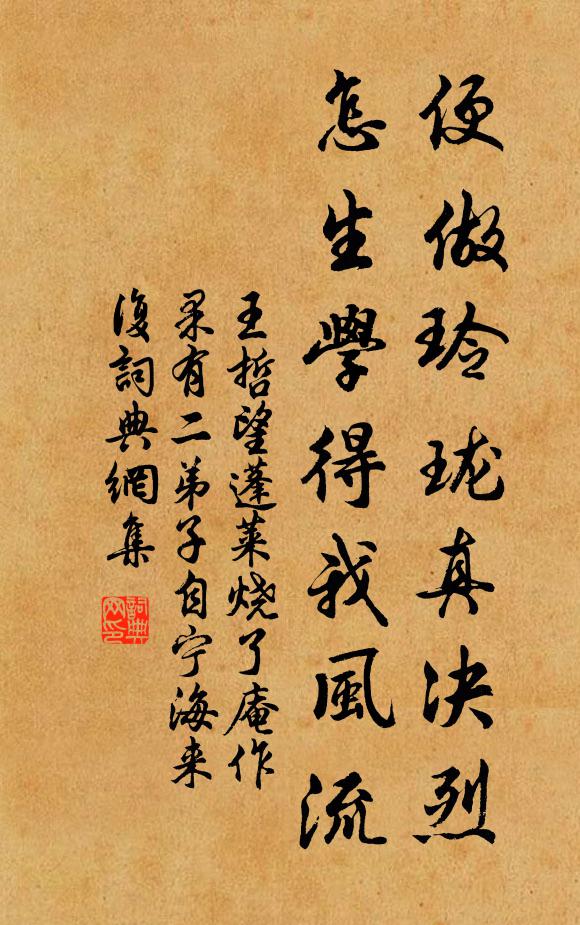 便做玲珑真決烈
怎生學得我風流
王哲望蓬莱烧了庵作
果有二弟子自宁海来
復詞典網集
詞典
网印